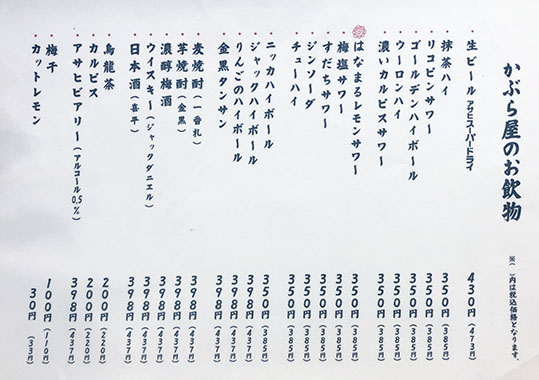 かぶら屋のお飲物
※( )内は税込価格となります。
生ビール アサヒスーパードライ 430円(473円)
抹茶ハイ 350円(385円)
リコピンサワー 350円(385円)
ゴールデンハイボール 350円(385円)
ウーロンハイ 350円(385円)
濃いカルピスサワー 350円(385円)
はなまるレモンサワー 350円(385円)
梅塩サワー 350円(385円)
すだちサワー 350円(385円)
ジンソーダ 350円(385円)
チューハイ 350円(385円)
ニッカハイボール 350円(385円)
ジャックハイボール 398円(437円)
りんごのハイボール 398円(437円)
金黒タンサン 398円(437円)
麦焼酎(一番札) 398円(437円)
芋焼酎(金黒) 398円(437円)
濃醇梅酒 398円(437円)
ウイスキー(ジャックダニエル) 398円(437円)
日本酒(喜平) 398円(437円)
烏龍茶 200円(220円)
カルピス 200円(220円)
アサヒビアリー(アルコール0.5%) 398円(437円)
梅干 100円(110円)
カットレモン 30円(33円)